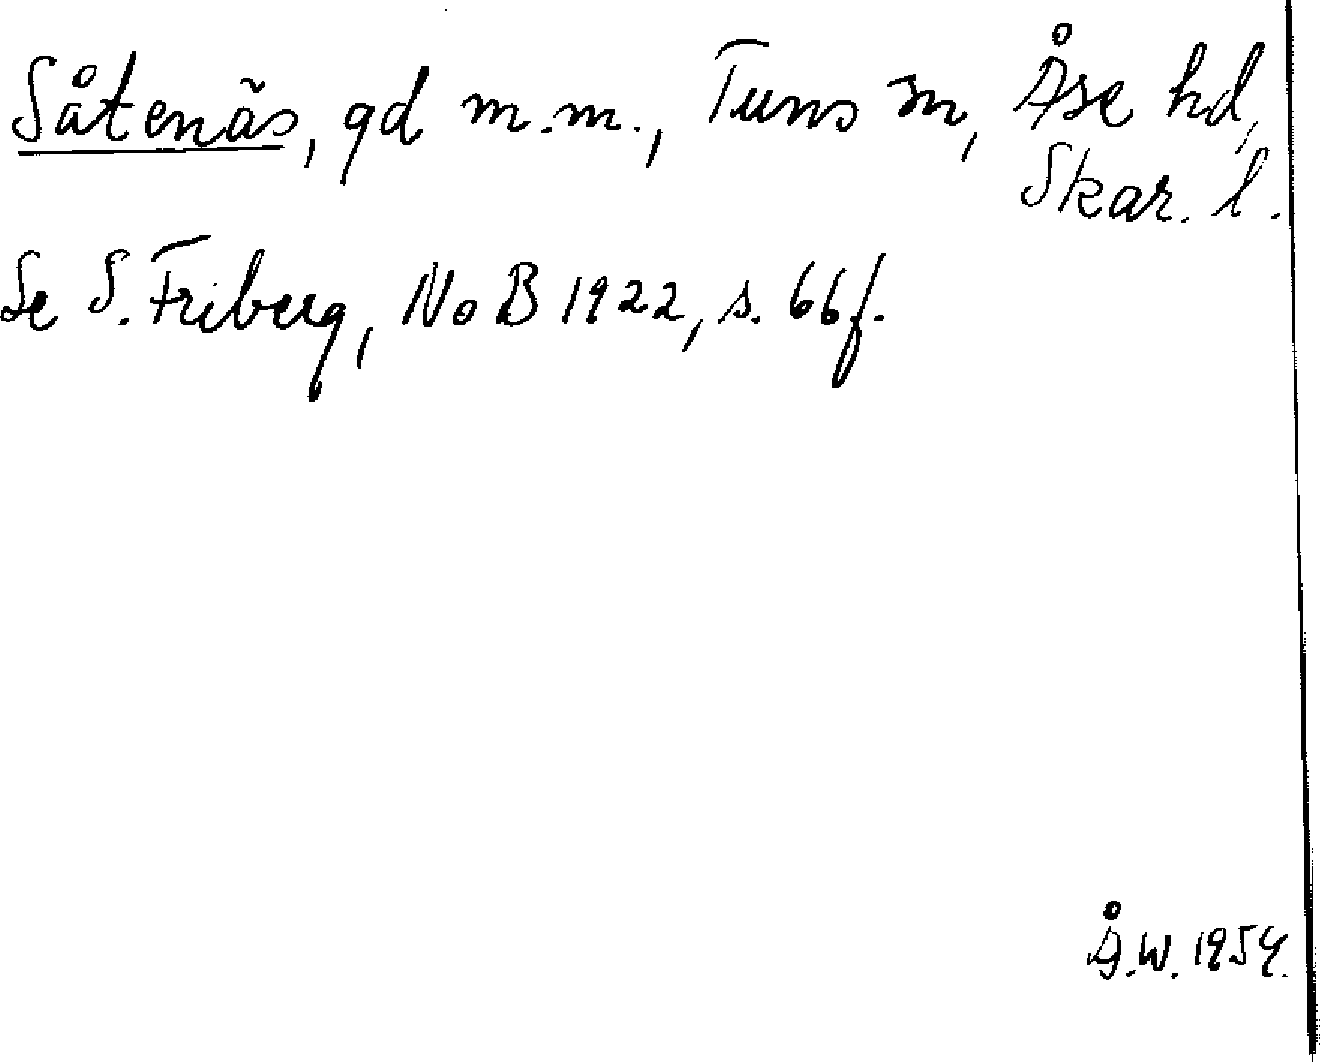 Såtenäs, gd m.m., Tuns sn, Åse hd,
Skar. l.
Se S. Friberg, NoB 1922, s. 66 f.
Å.W. 1954.